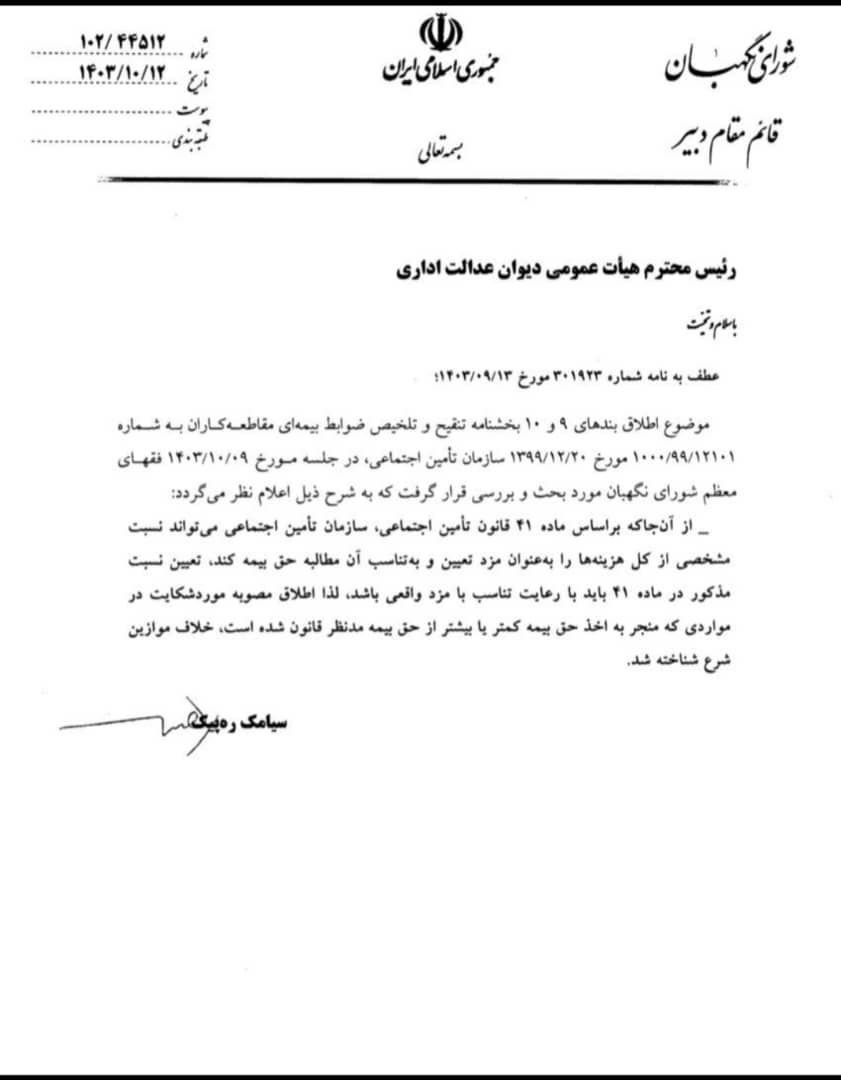 شورای نگهبان
قائم مقام دبیر
جمهوری اسلامی ایران
بسمه تعالی
شماره ۱۰۲/۴۴۵۱۲
تاریخ ۱۴۰۳/۱۰/۱۲
پیوست
طبقه بندی
رئیس محترم هیأت عمومی دیوان عدالت اداری
باسلام و تحیت
عطف به نامه شماره ۳۰۱۹۲۳ مورخ ۱۴۰۳/۰۹/۱۳؛
موضوع اطلاق بندهای ۹ و ۱۰ بخشنامه تنقیح و تلخیص ضوابط بیمه‌ای مقاطعه‌کاران به شماره
۱۰۰۰/۹۹/۱۲۱۰۱ مورخ ۱۳۹۹/۱۲/۲۰ سازمان تأمین اجتماعی، در جلسه مورخ ۱۴۰۳/۱۰/۰۹ فقهای
معظم شورای نگهبان مورد بحث و بررسی قرار گرفت که به شرح ذیل اعلام نظر می‌گردد:
_ از آن‌جاکه براساس ماده ۴۱ قانون تأمین اجتماعی، سازمان تأمین اجتماعی می‌تواند نسبت
مشخصی از کل هزینه‌ها را به‌عنوان مزد تعیین و به‌تناسب آن مطالبه حق بیمه کند، تعیین نسبت
مذکور در ماده ۴۱ باید با رعایت تناسب با مزد واقعی باشد، لذا اطلاق مصوبه موردشکایت در
مواردی که منجر به اخذ حق بیمه کمتر یا بیشتر از حق بیمه مدنظر قانون شده است، خلاف موازین
شرع شناخته شد.
سیامک ره‌پیک